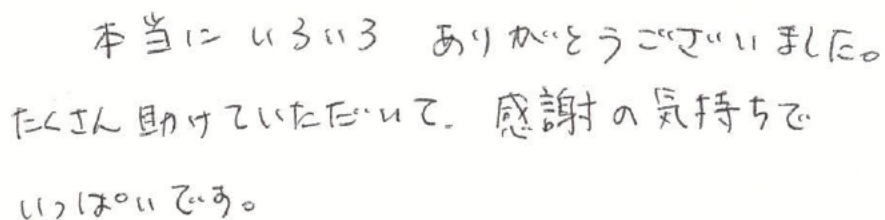 本当に いろいろ ありがとうございました。
たくさん助けていただいて、感謝の気持ちで
いっぱいです。